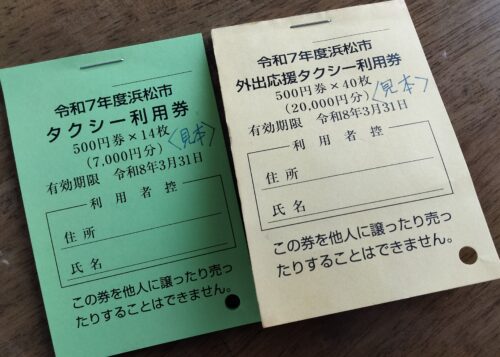 令和7年度浜松市
タクシー利用券
500円券×14枚
(7,000円分)
〈見本〉
有効期限 令和8年3月31日
利用者控
住所
氏名
この券を他人に譲ったり売っ
たりすることはできません。
令和7年度浜松市
外出応援タクシー利用券
500円券×40枚
(20,000円分)
〈見本〉
有効期限 令和8年3月31日
利用者控
住所
氏名
この券を他人に譲ったり売っ
たりすることはできません。